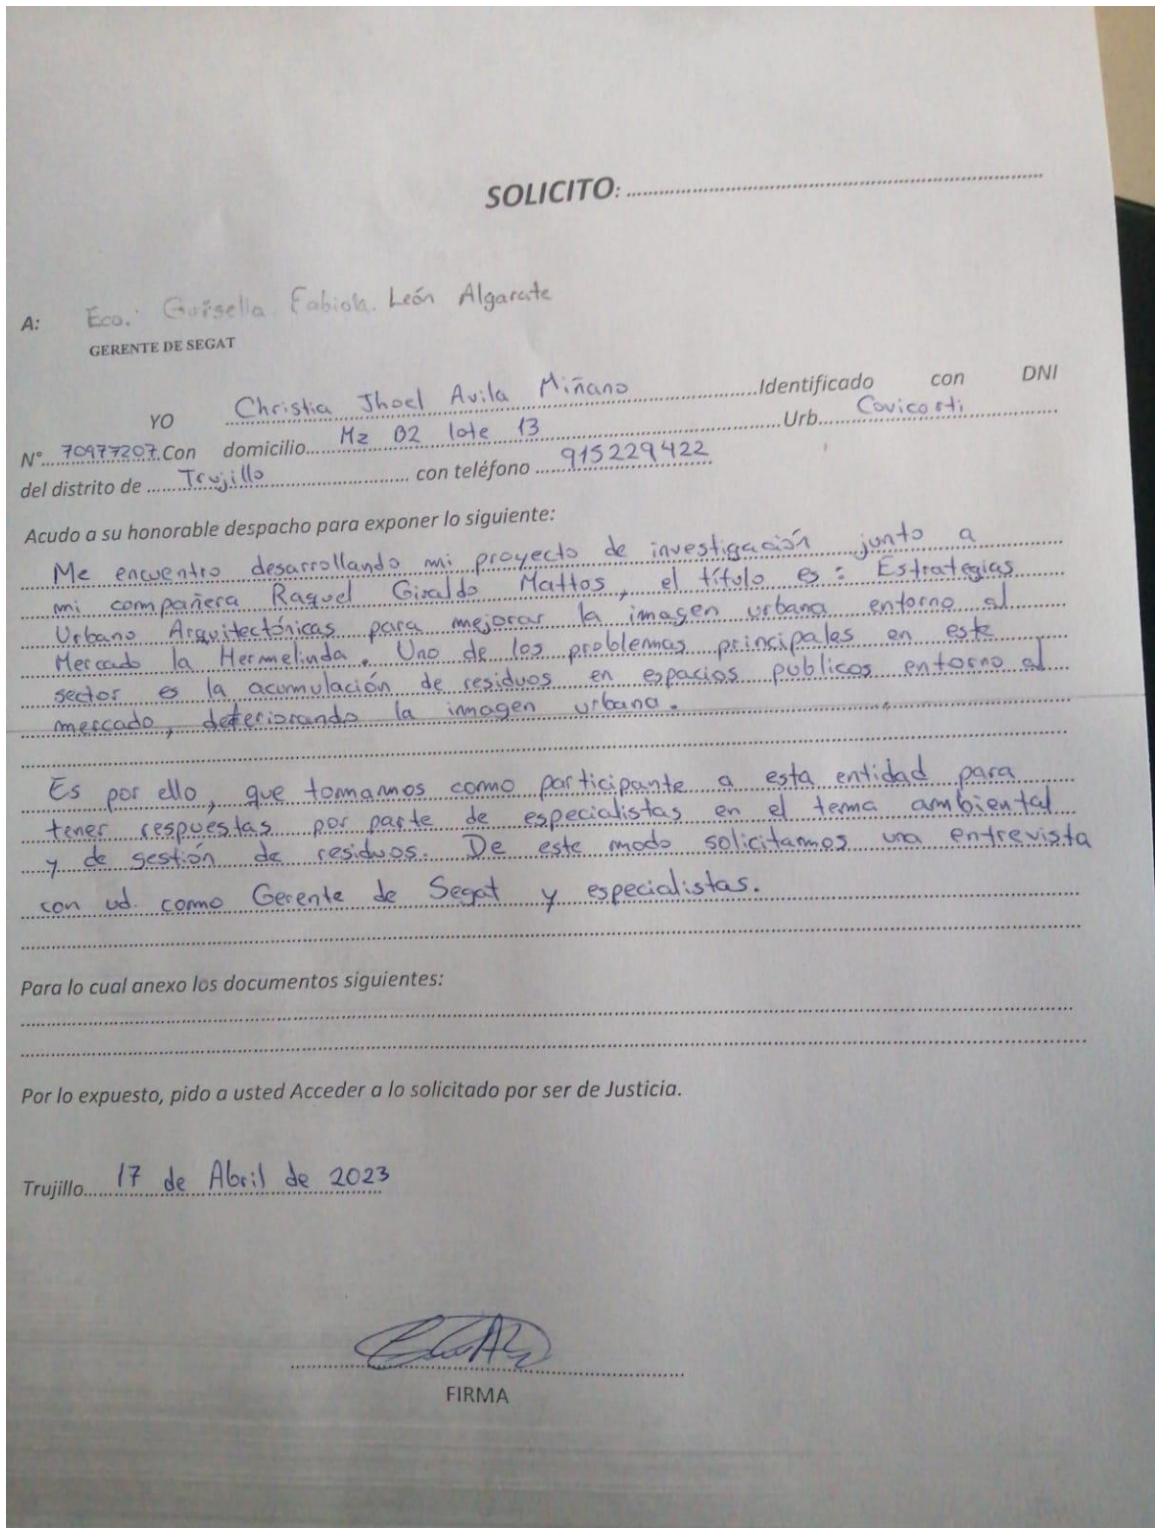 SOLICITO: ....................
A: Eco. Guisella Fabiola León Algarate
GERENTE DE SEGAT
YO Christia Jhoel Avila Miñano Identificado con DNI
N° 70977207 Con domicilio Mz B2 lote 13 Urb. Covicorti
del distrito de Trujillo con teléfono 915229422
Acudo a su honorable despacho para exponer lo siguiente:
Me encuentro desarrollando mi proyecto de investigación junto a
mi compañera Raquel Giraldo Mattos, el título es: Estrategias
Urbano Arquitectónicas para mejorar la imagen urbana entorno al
Mercado la Hermelinda. Uno de los problemas principales en este
sector es la acumulación de residuos en espacios publicos entorno al
mercado, deteriorando la imagen urbana.
Es por ello, que tomamos como participante a esta entidad para
tener respuestas por parte de especialistas en el tema ambiental
y de gestión de residuos. De este modo solicitamos una entrevista
con ud. como Gerente de Segat y especialistas.
Para lo cual anexo los documentos siguientes:
Por lo expuesto, pido a usted Acceder a lo solicitado por ser de Justicia.
Trujillo 17 de Abril de 2023
FIRMA